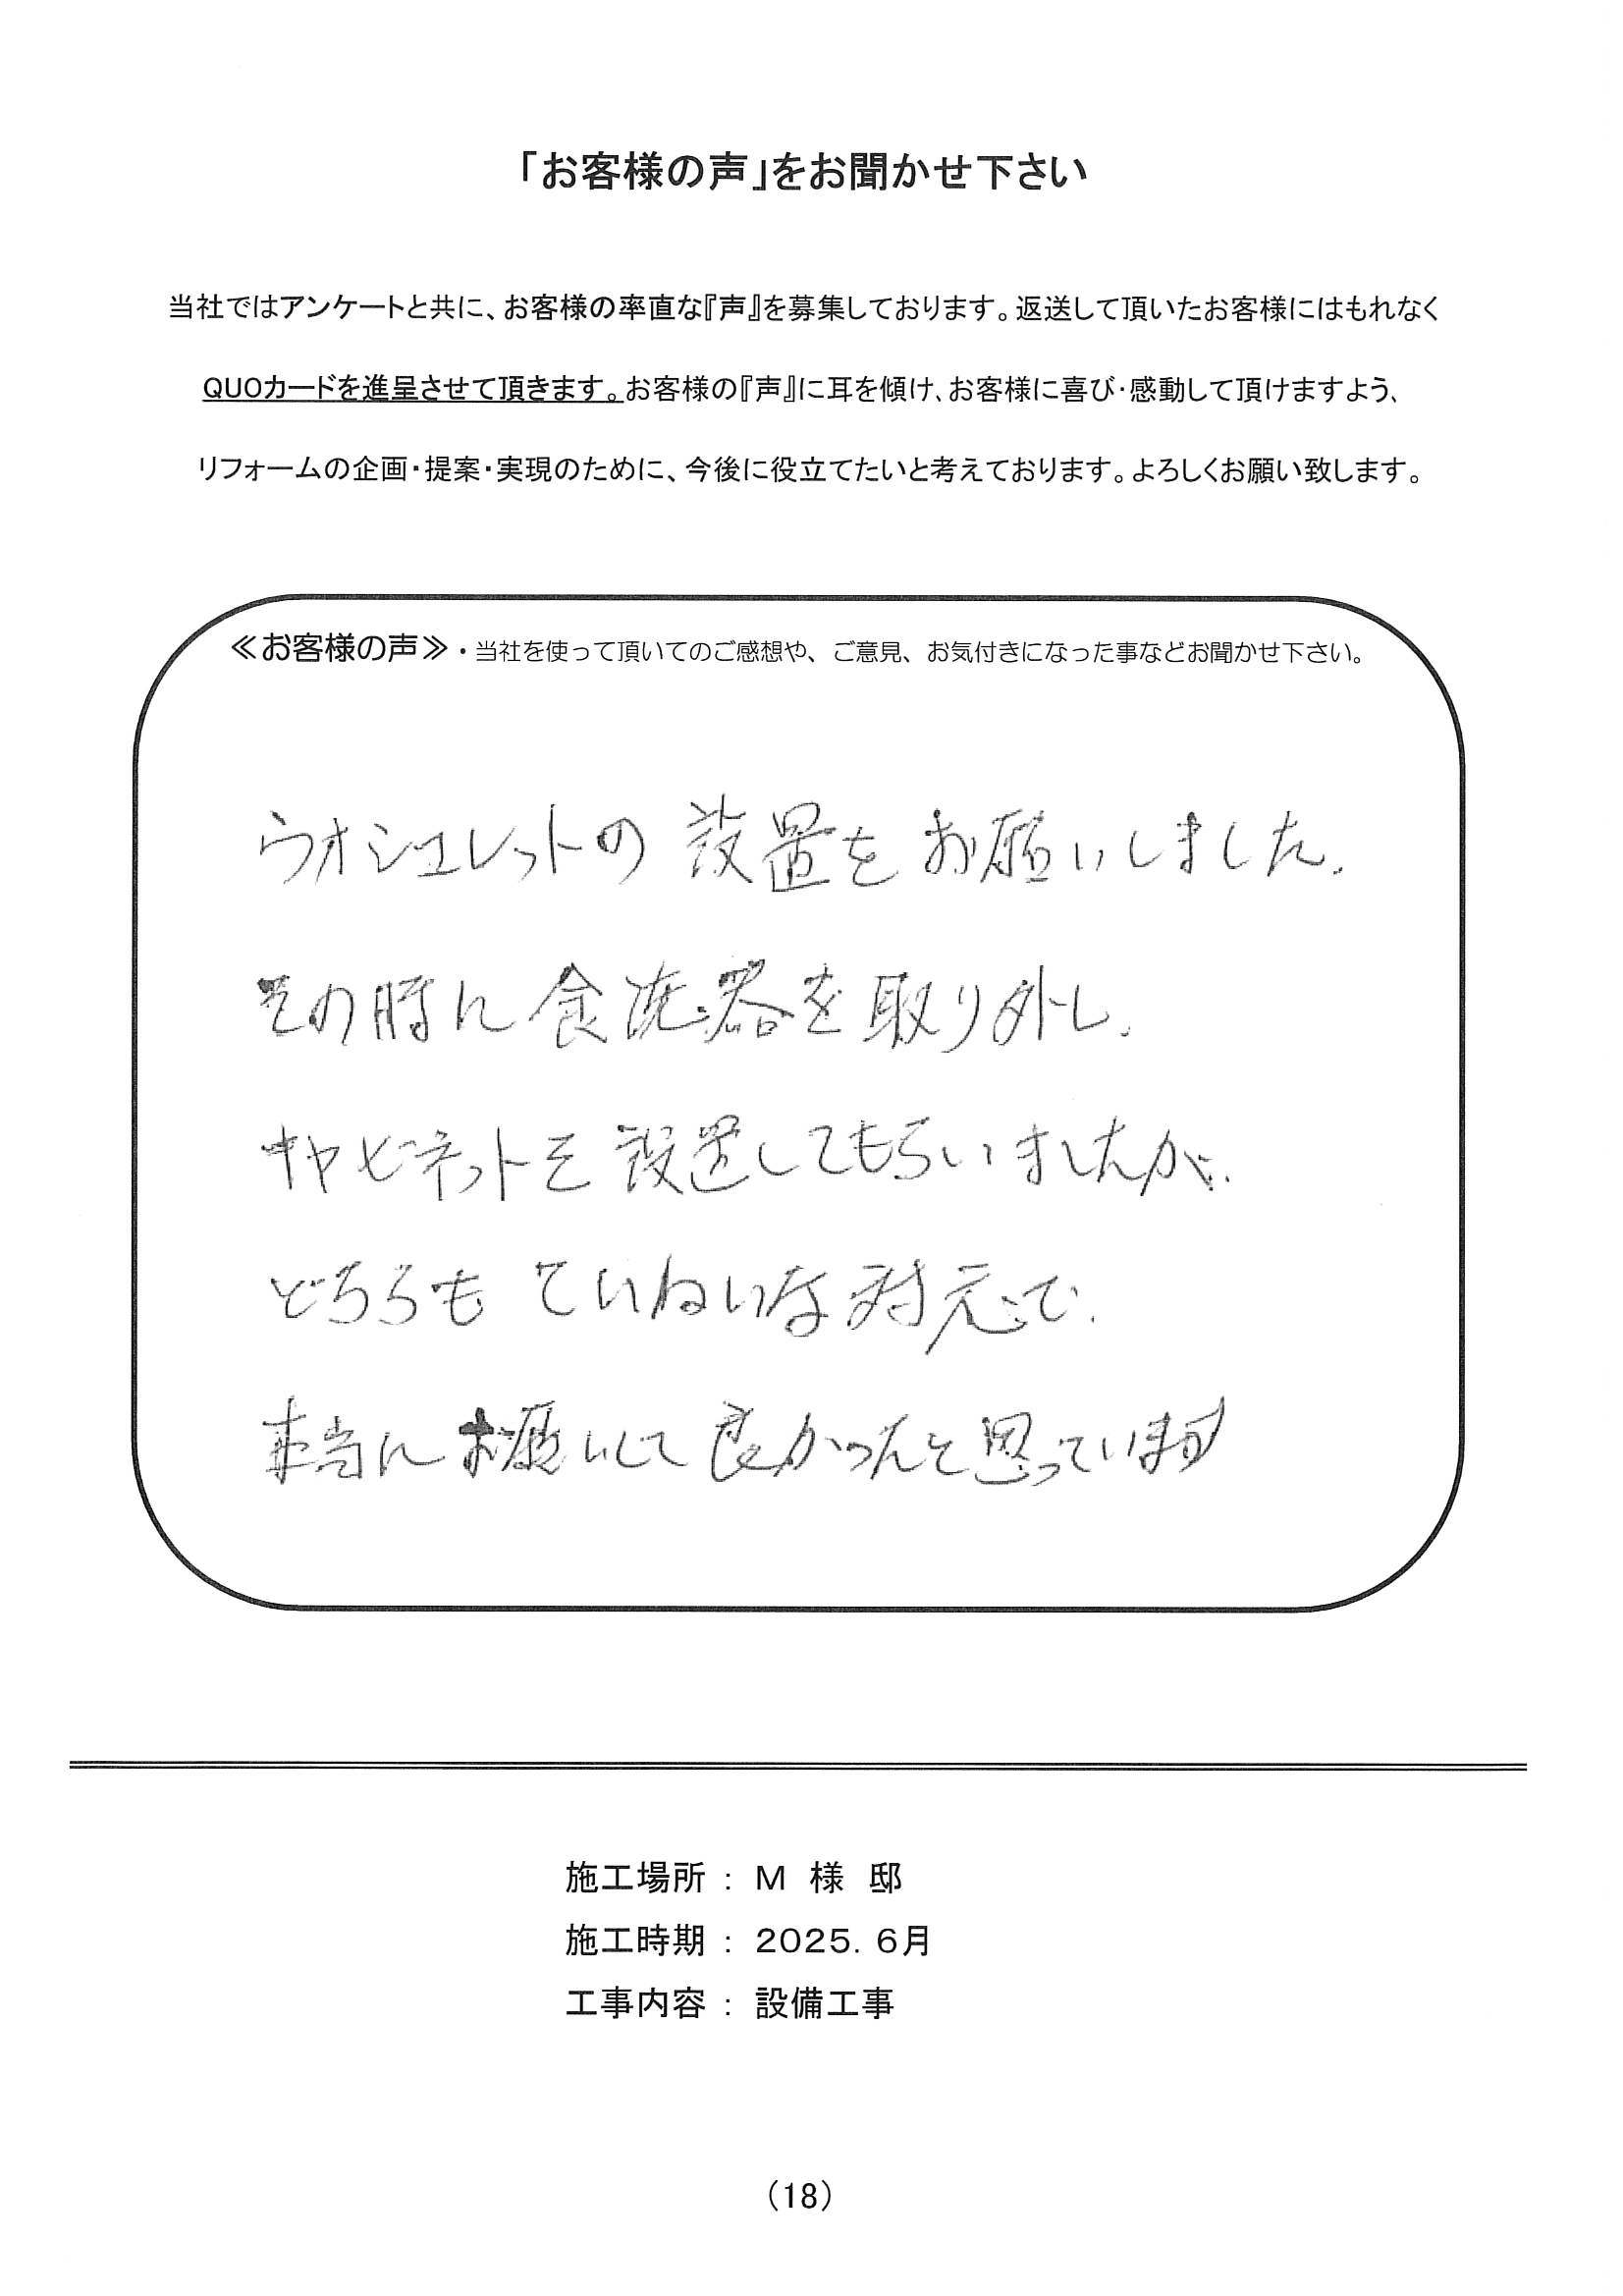 「お客様の声」をお聞かせ下さい
当社ではアンケートと共に、お客様の率直な『声』を募集しております。返送して頂いたお客様にはもれなく
QUOカードを進呈させて頂きます。お客様の『声』に耳を傾け、お客様に喜び・感動して頂けますよう、
リフォームの企画・提案・実現のために、今後に役立てたいと考えております。よろしくお願い致します。
≪お客様の声≫・当社を使って頂いてのご感想や、ご意見、お気付きになった事などお聞かせ下さい。
ウオシュレットの設置をお願いしました。
その時に食洗器を取り外し、
キャビネットを設置してもらいましたが、
どちらもていねいな対応で、
本当にお願いして良かったと思っています
施工場所 : M 様 邸
施工時期 : 2025. 6月
工事内容 : 設備工事
(18)